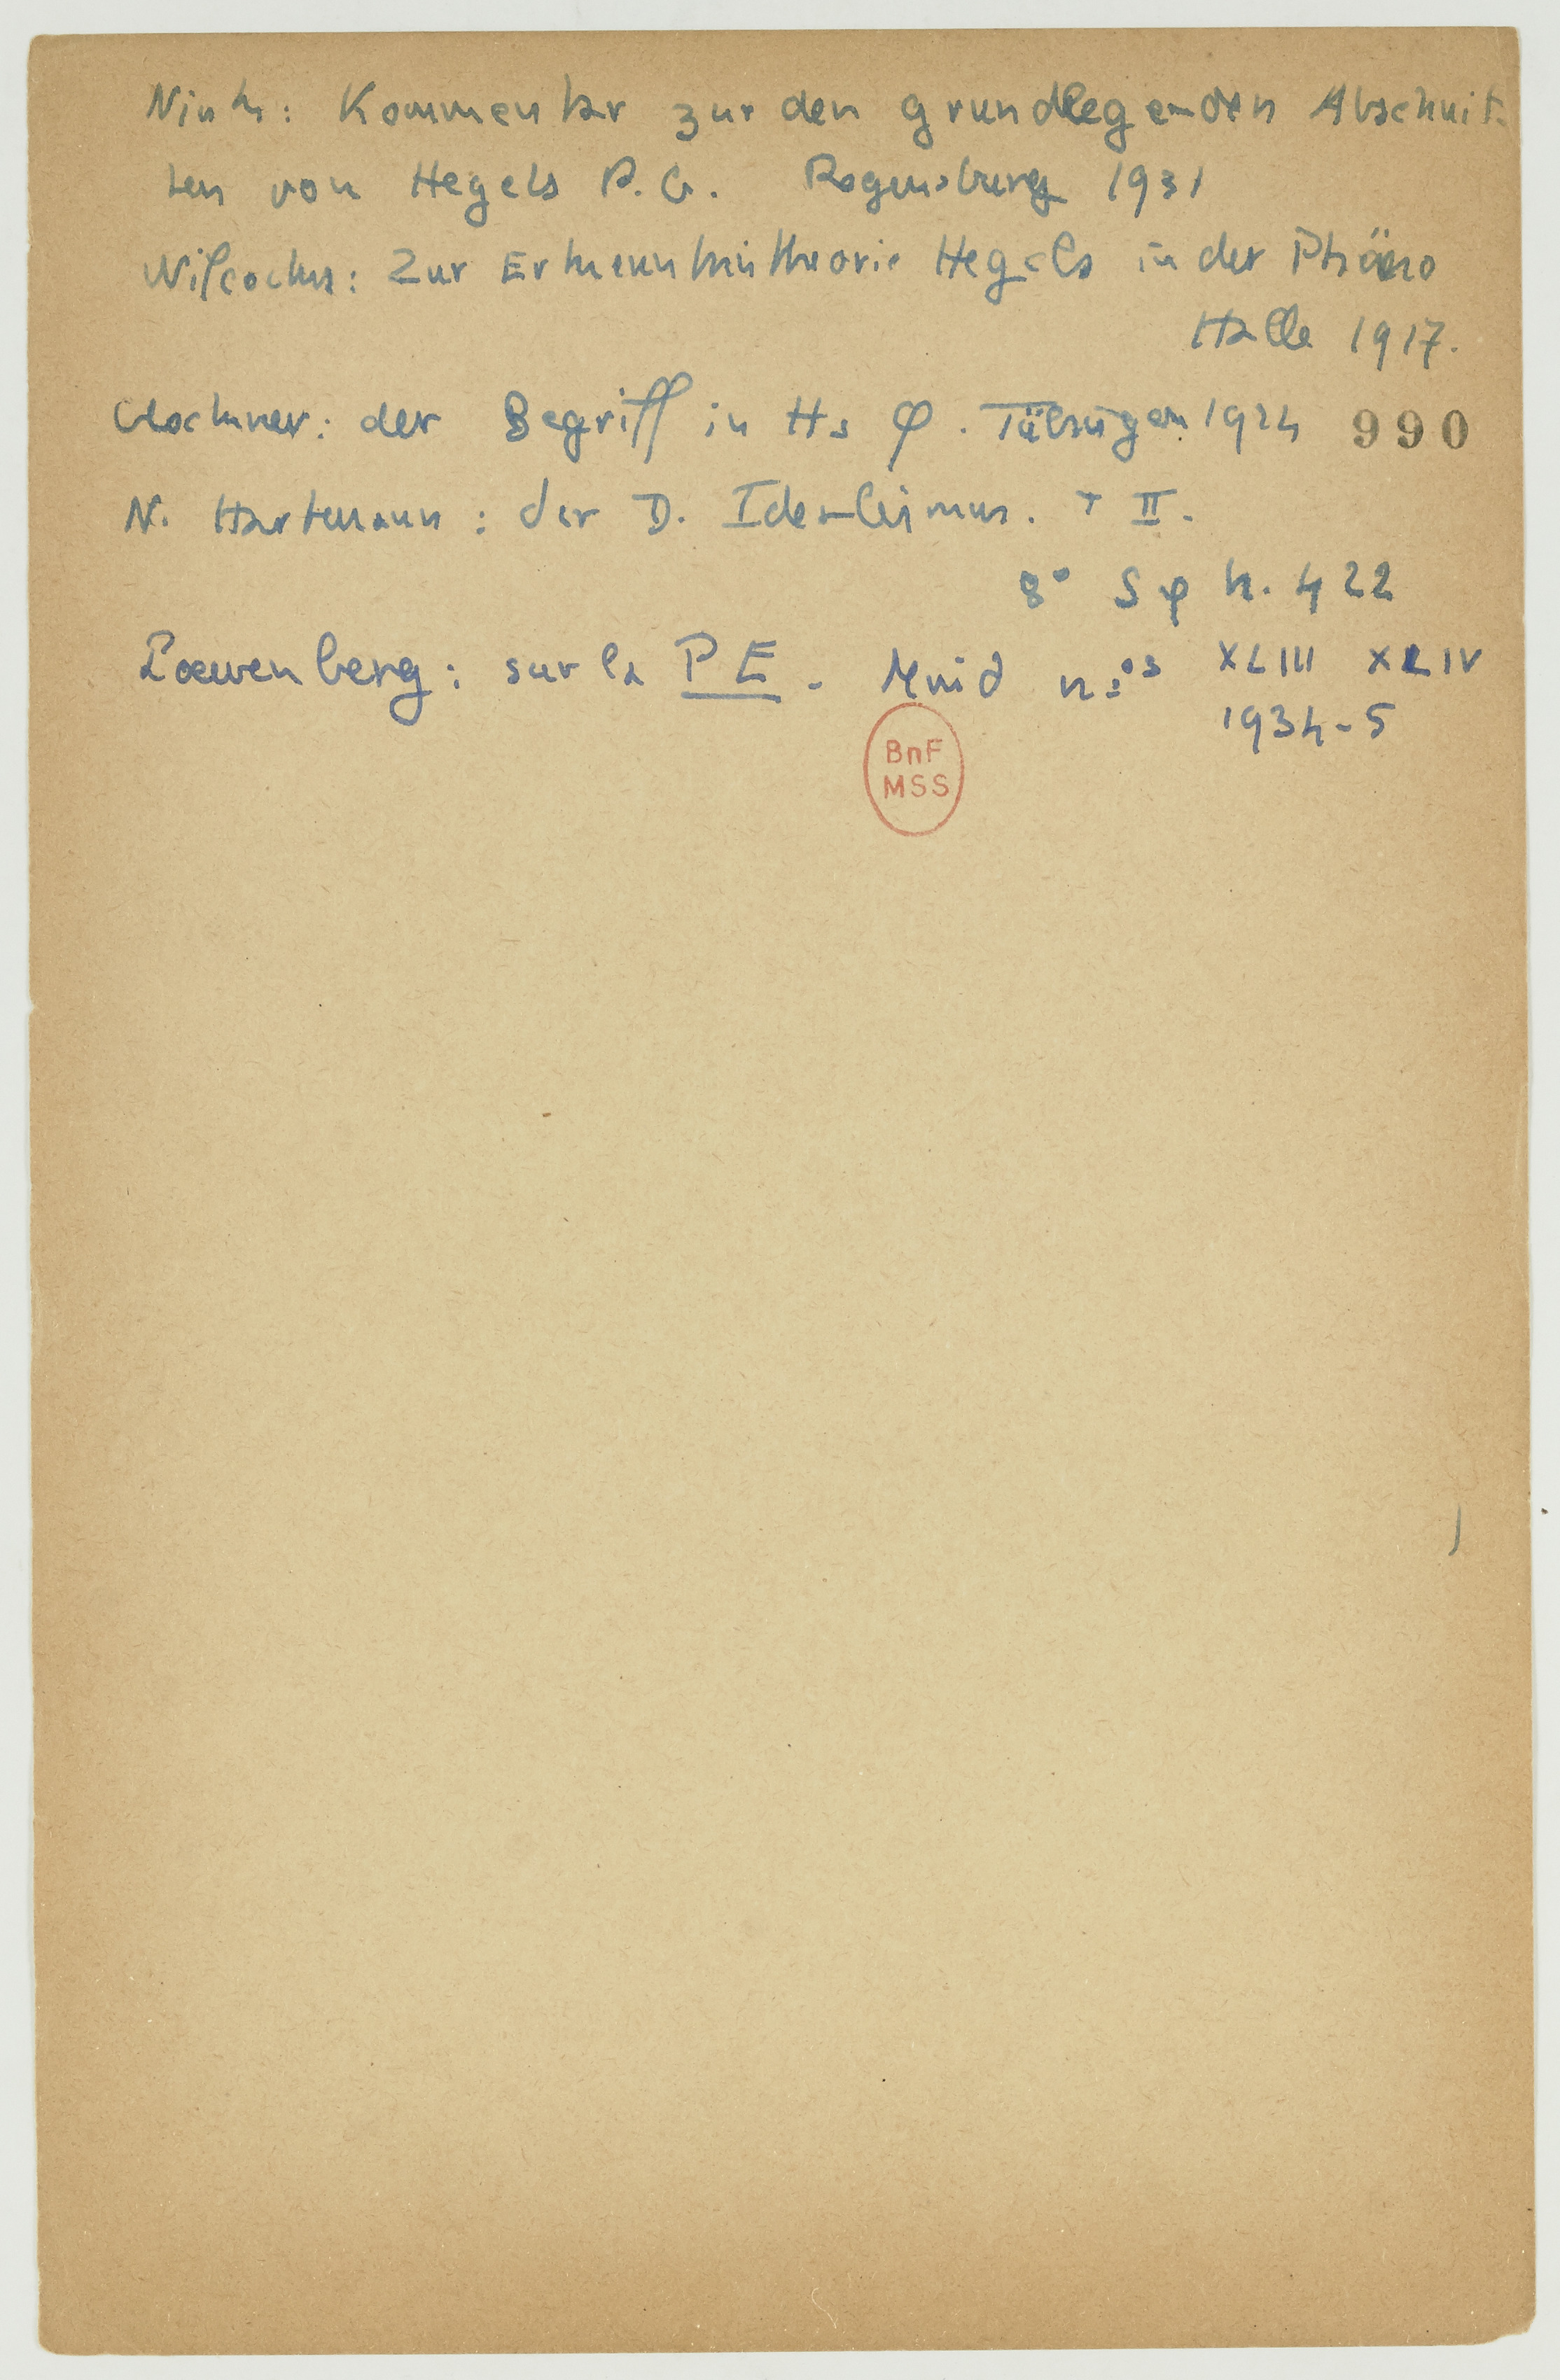 Nink : Kommentar zur den grundlegenden Abschnit-
ten von Hegels P. G. Regensburg 1931
Wilcocks : Zur Erkenntnistheorie Hegels in der Phäno
Halle 1917.
Glockner : der Begriff in Hs φ. Tübingen 1924 990
N. Hartmann : der D. Idealismus. T II.
8° S φ n. 422
Loewenberg : sur la P E - Mind nos XLIII XLIV
1934-5
BnF
MSS